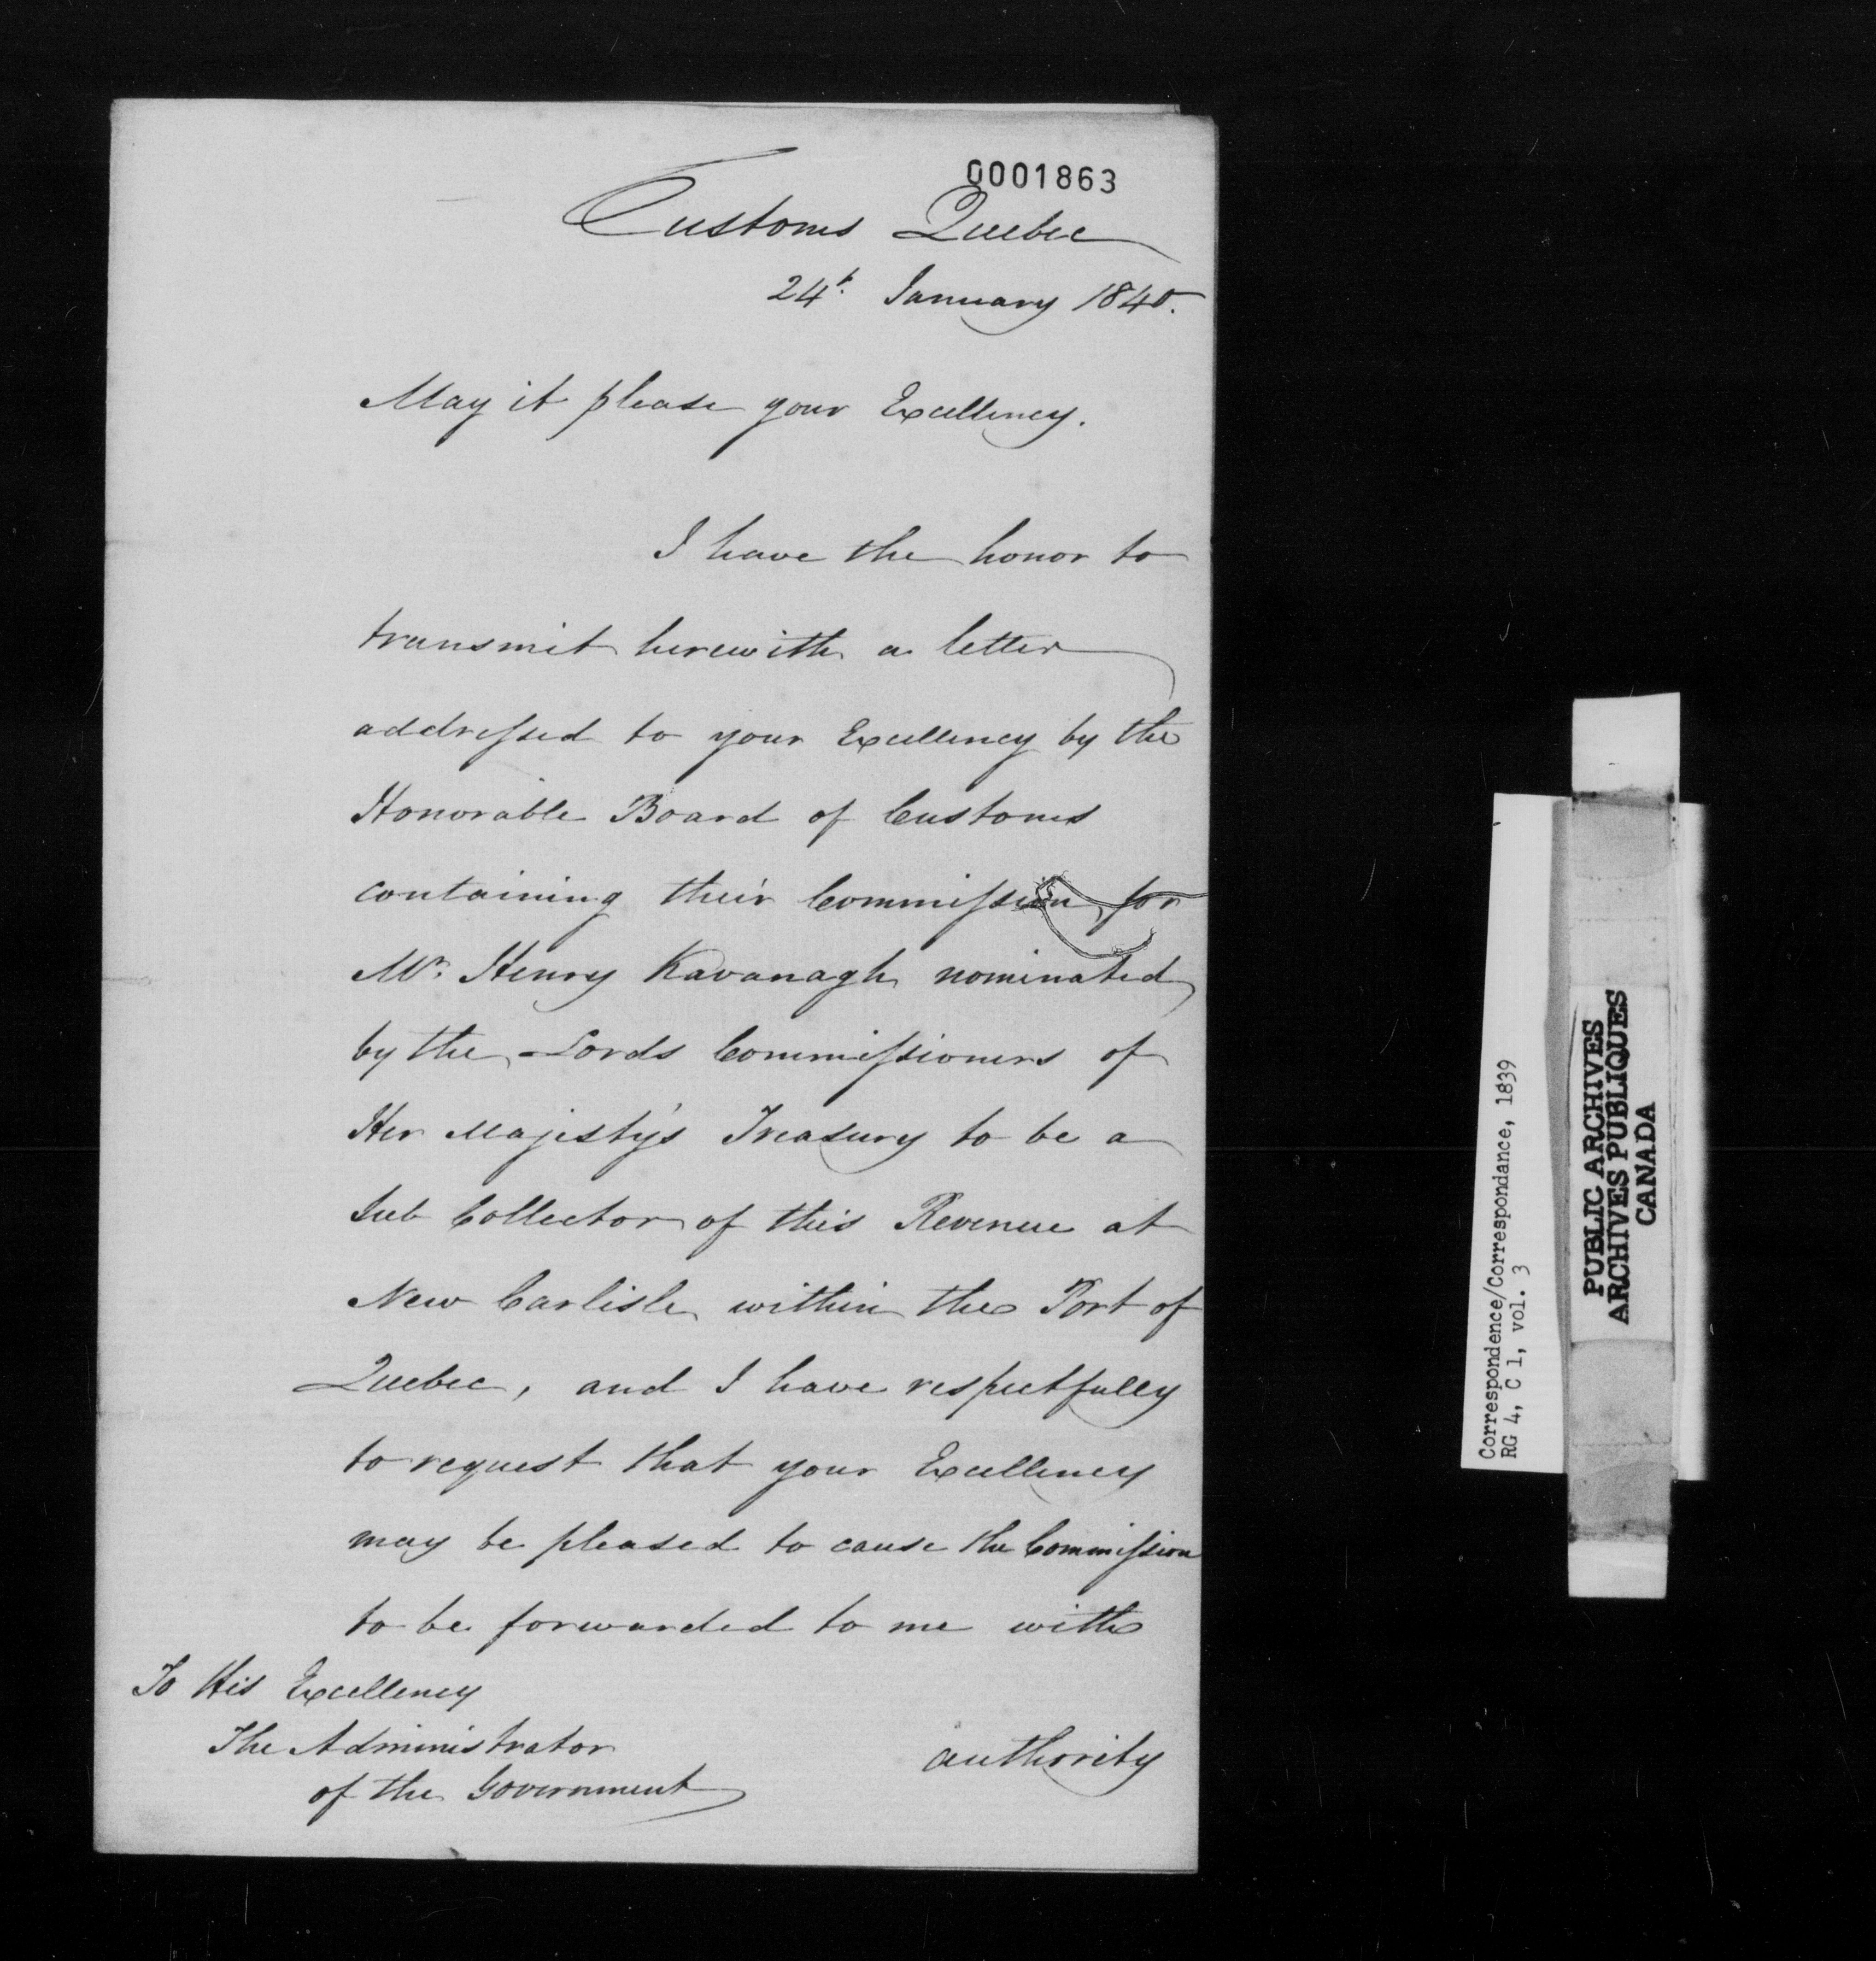 0001863
Customs Quebec
24th January 1840.
May it please your Excellency.
I have the honor to
transmit herewith a letter
addressed to your Excellency by the
Honorable Board of Customs
containing their Commission for
Mr. Henry Kavanagh nominated
by the Lords Commissioners of
Her Majesty's Treasury to be a
Sub Collector of this Revenue at
New Carlisle within the Port of
Quebec, and I have respectfully
to request that your Excellency
may be pleased to cause the Commission
to be forwarded to me with
authority
To His Excellency
The Administrator
of the Government
Correspondence/Correspondance, 1839
RG 4, C 1, vol. 3
PUBLIC ARCHIVES
ARCHIVES PUBLIQUES
CANADA